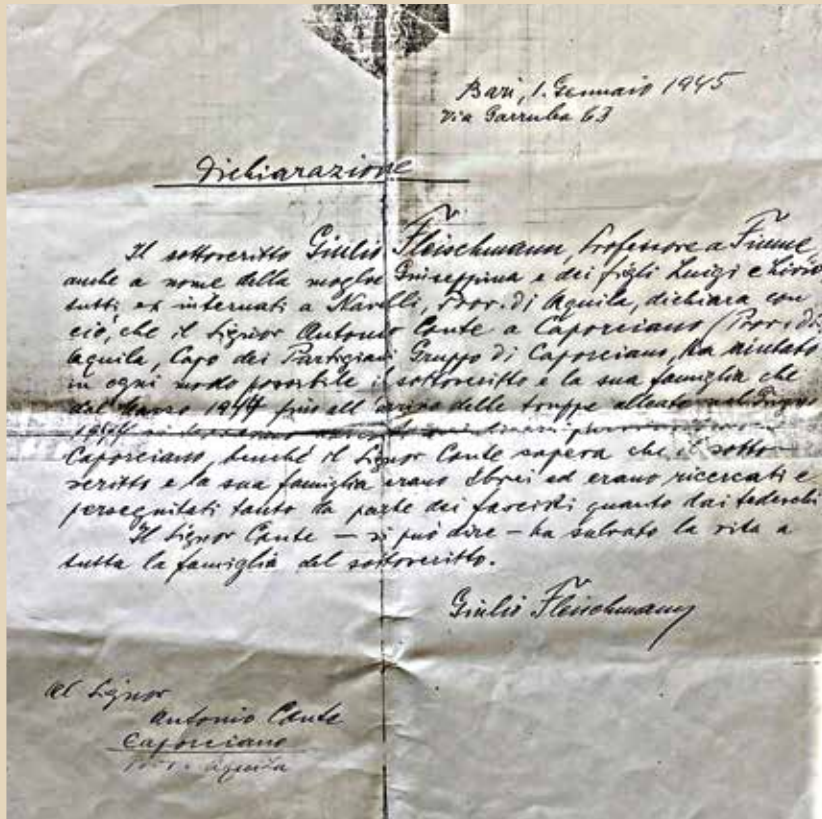 Bari, 1. Gennaio 1945
Via Garruba 63
Dichiarazione
Il sottoscritto Giulio Fleischmann, Professore a Fiume
anche a nome della moglie Giuseppina e dei figli Luigi e Livio
tutti, ex internati a Navelli, Prov. di Aquila, dichiara con
ciò, che il Signor Antonio Conte a Caporciano (Prov. di
Aquila, Capo dei Partigiani Gruppo di Caporciano, ha aiutato
in ogni modo possibile il sottoscritto e la sua famiglia che
dal Marzo 1944 fino all'arrivo delle truppe alleate nel Giugno
1944
Caporciano, benchè il Signor Conte sapeva che il sotto-
scritto e la sua famiglia erano Ebrei ed erano ricercati e
perseguitati tanto da parte dei fascisti quanto dai tedeschi
Il Signor Conte — si può dire — ha salvato la vita a
tutta la famiglia del sottoscritto.
Giulio Fleischmann
Al Signor
Antonio Conte
Caporciano
Aquila